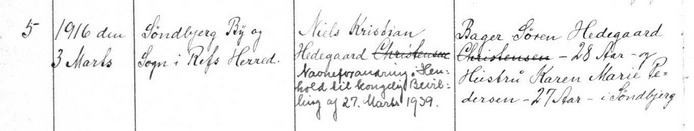 5
1916 den
3 Marts
Søndbjerg By og
Sogn i Refs Herred.
Niels Kristian
Hedegaard Christensen
Navneforandring i Hen-
hold til kongelig Bevil-
ling af 27. Marts 1939.
Bager Søren Hedegaard
Christensen – 28 Aar – og
Hustru Karen Marie Pe-
dersen – 27 Aar – i Søndbjerg